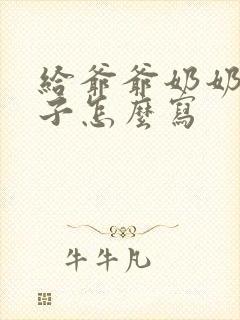 給爺爺奶奶
子怎麼寫
牛牛凡